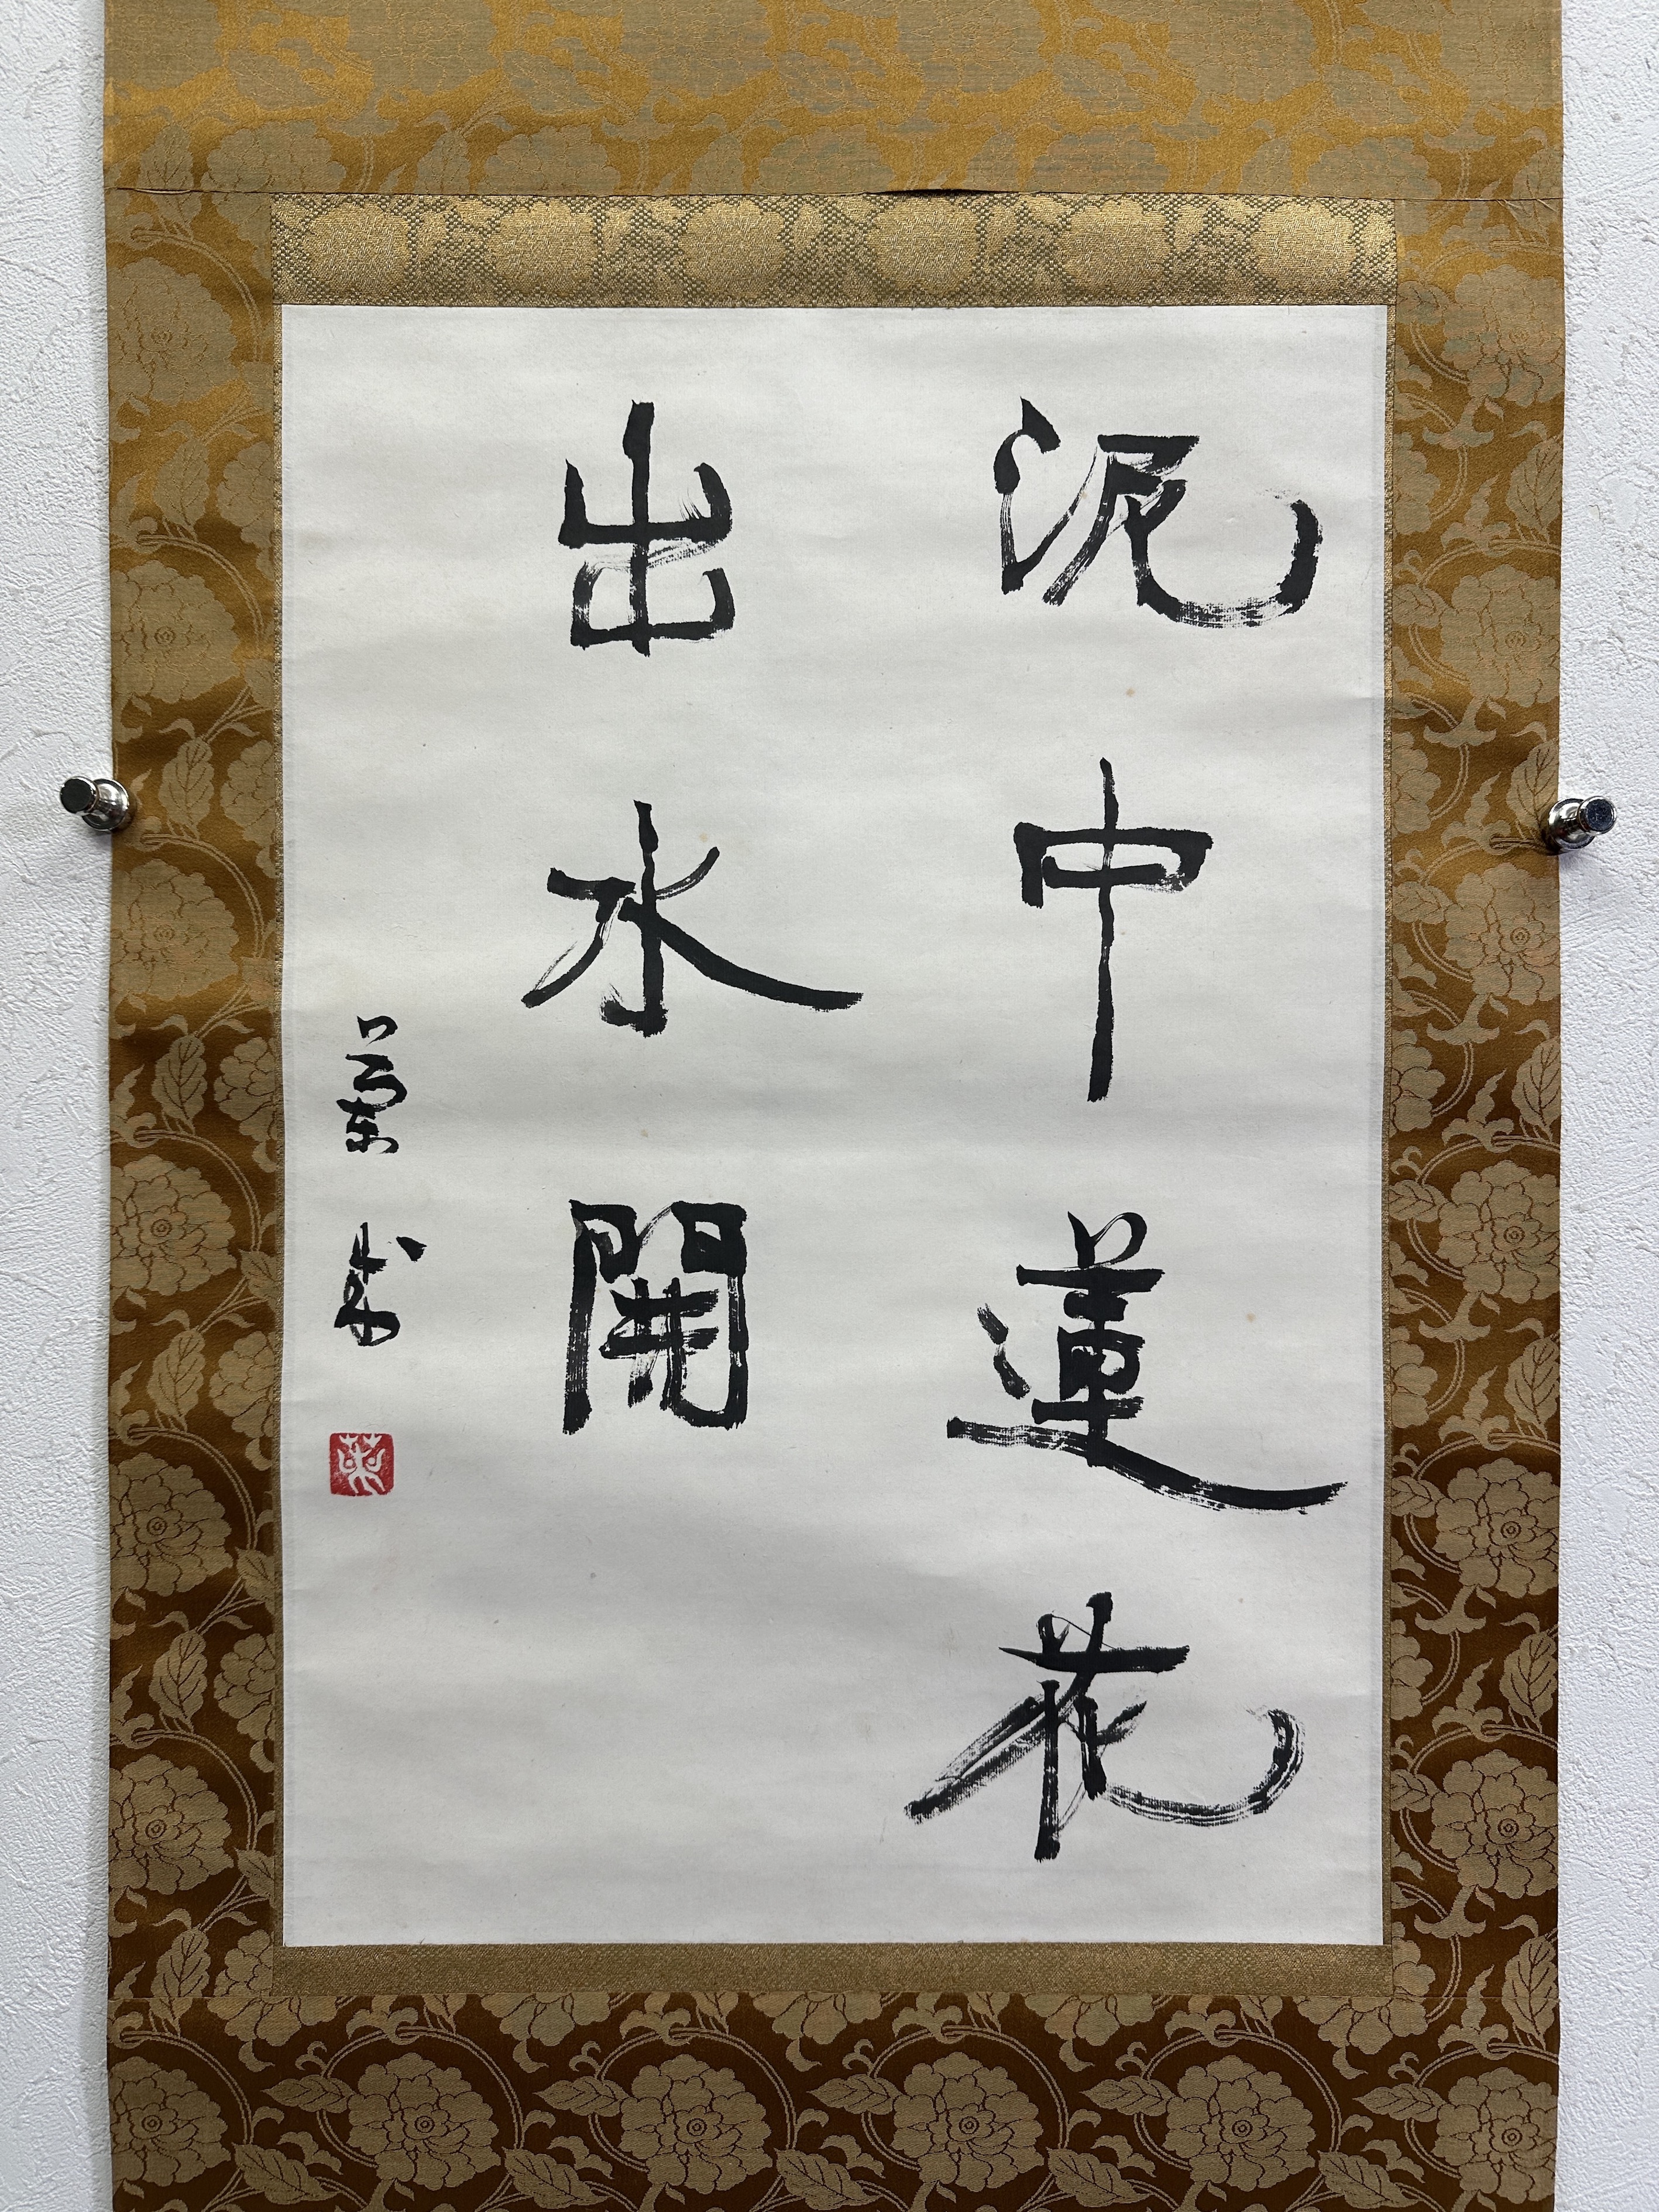 泥中蓮花
出水開